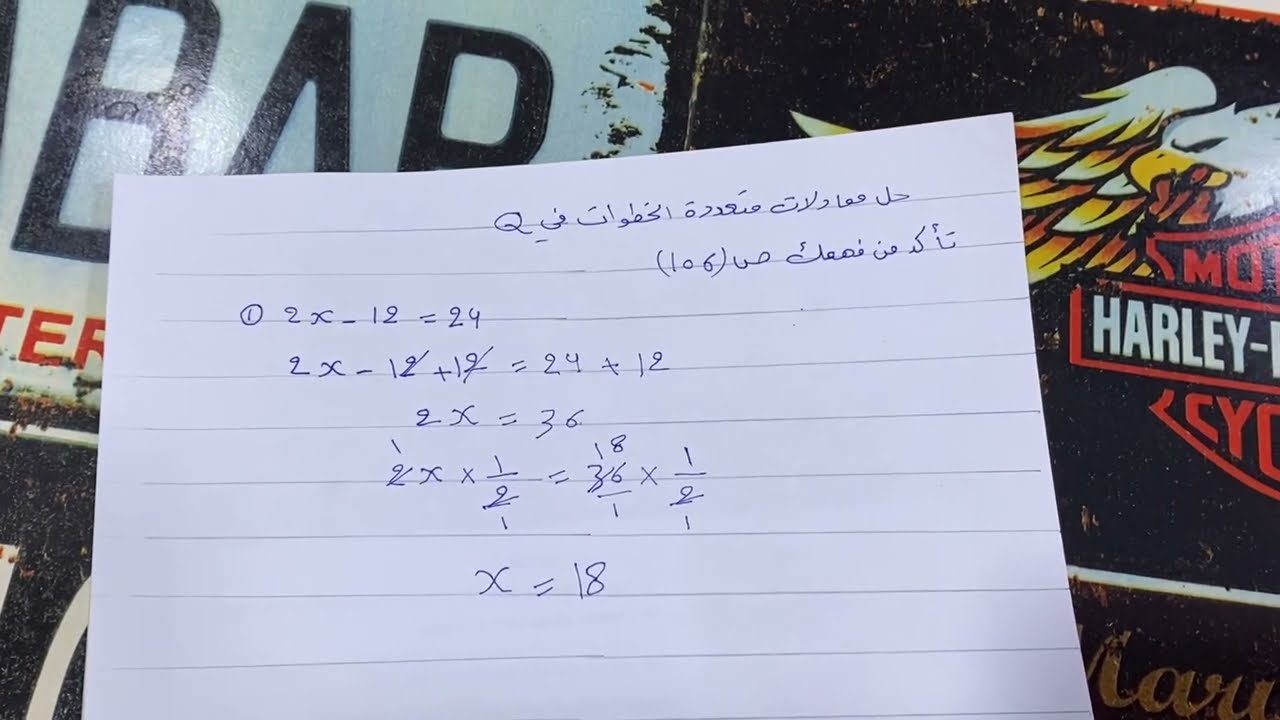 BAR
TER
HARLEY-
MOT
CYC
حل معادلات متعددة الخطوات في Q
تأكد من فهمك ص (106)
① 2x - 12 = 24
2x - 12 + 12 = 24 + 12
2x = 36
1 18
2x × 1/2 = 36/1 × 1/2
1 1 1
x = 18